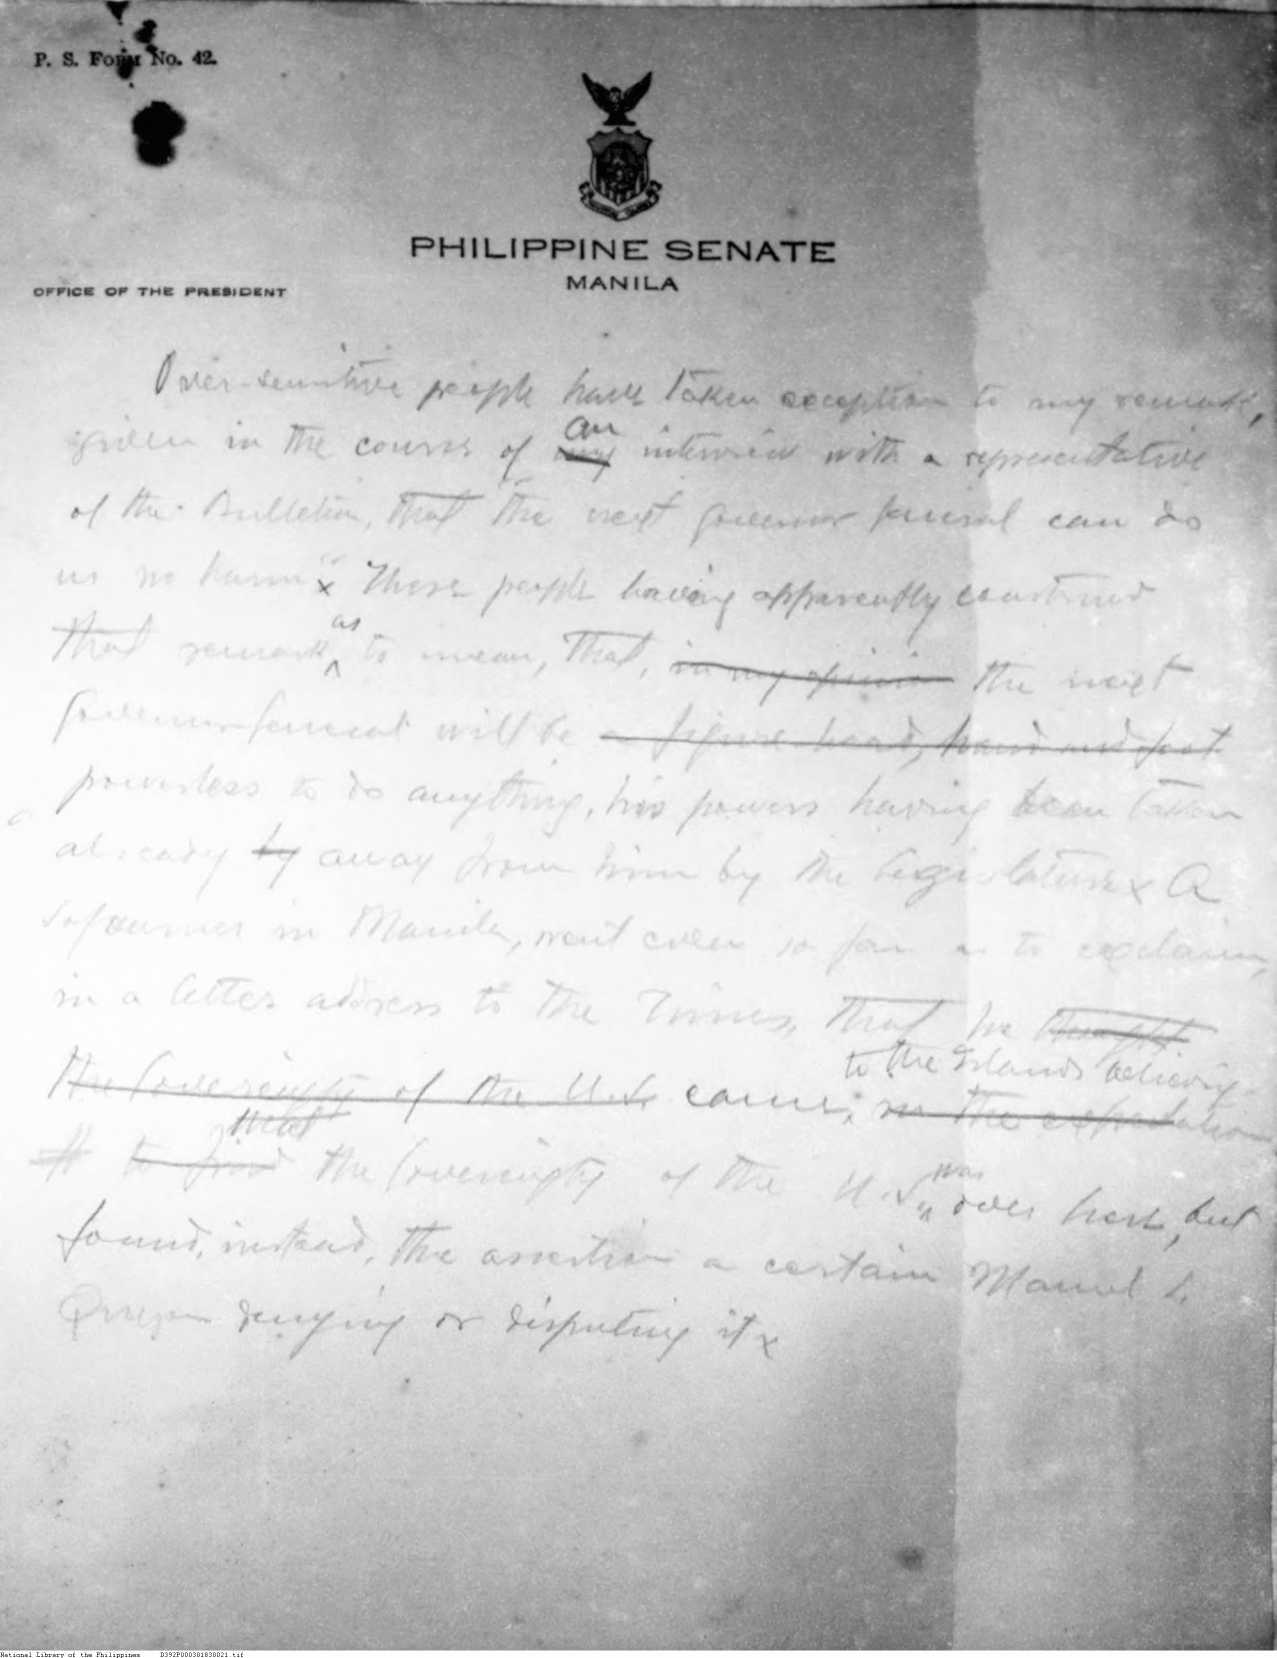 P. S. Form No. 42.
PHILIPPINE SENATE
MANILA
OFFICE OF THE PRESIDENT
Over-sensitive people have taken exception to my remark,
given in the course of an interview with a representative
of the Bulletin, that "the next Governor General can do
us no harm" x These people having apparently construed
that remark as to mean, that, in my opinion the next
Governor-General will be a figure head, hand and foot
powerless to do anything, his powers having been taken
already by away from him by the Legislature x A
sojourner in Manila, went even so far as to explain,
in a letter address to the Times, that he thought
the Sovereignty of the U.S. came to the Islands believing in the expectation
to find that the Sovereignty of the U.S. was over here, but
found, instead, the assertion a certain Manuel L.
Quezon denying or disputing it x
National Library of the Philippines D392P000381838021.tif